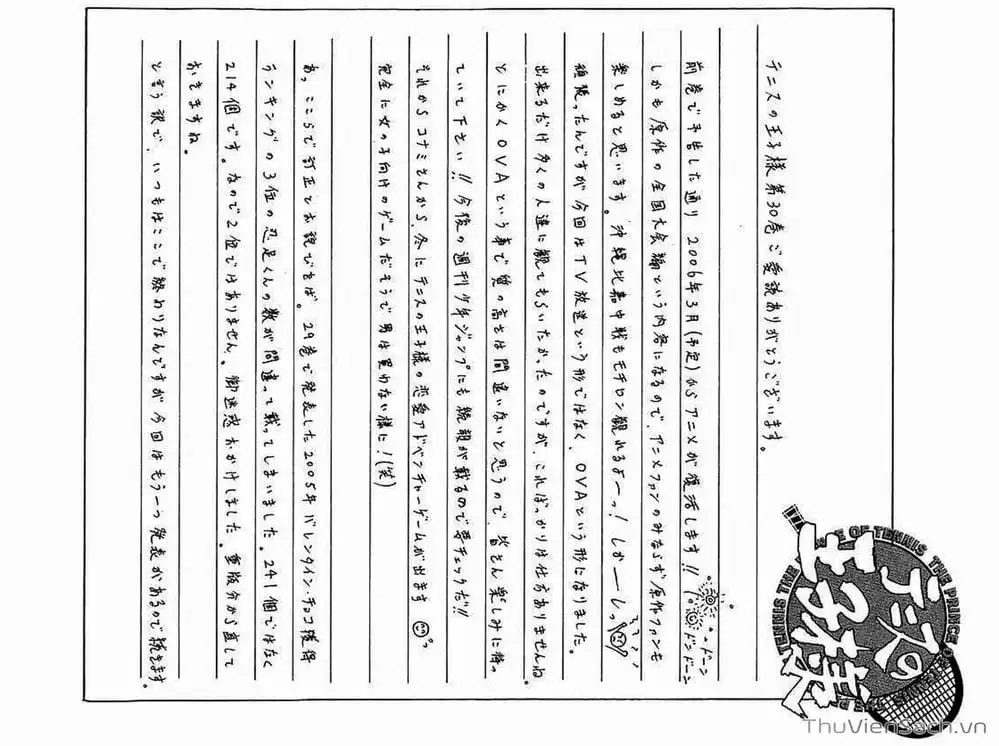 テニスの王子様 第30巻ご愛読ありがとうございます。
前巻で予告した通り 2006年3月(予定)からアニメが復活します!! ドーン ドンドーン
しかも原作の全国大会編という内容になるので、アニメファンのみならず原作ファンも
楽しめると思います。沖縄比嘉中戦もモチロン観れるよーっ! しかーしっ
頑張ったんですが今回はTV放送という形ではなく、OVAという形になりました。
出来るだけ多くの人達に観てもらいたかったのですが、こればっかりは仕方ありませんね。
とにかくOVAという事で質の高さは間違いないと思うので、皆さん楽しみに待っ
ていて下さい!! 今後の週刊少年ジャンプにも続報が載るので要チェックだ!!
それからコナミさんから、冬にテニスの王子様の恋愛アドベンチャーゲームが出ますっ
完全に女の子向けのゲームだそうで男は買わない様に!(笑)
あっ、ここらで訂正とお詫びをば。29巻で発表した2005年バレンタイン・チョコ獲得
ランキングの3位の忍足くんの数が間違って載ってしまいました。241個ではなく
214個です。なので2位ではありません。御迷惑おかけしました。重版分から直して
おきますね。
と言う訳で、いつもはここで終わりなんですが今回はもう一つ発表があるので続きます。
テニスの
王子様
THE PRINCE OF TENNIS
ThuVienSach.vn